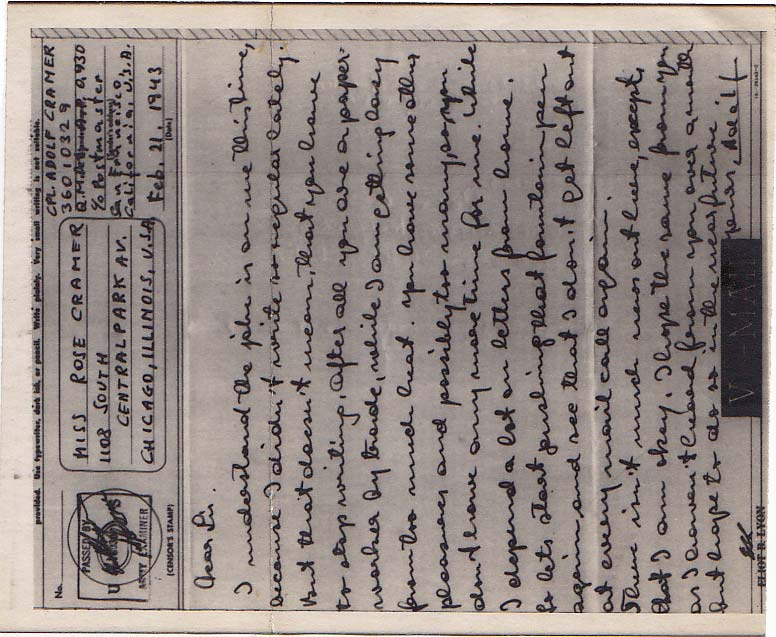 provided. Use typewriter, dark ink, or pencil. Write plainly. Very small writing is not suitable.
No.
PASSED BY
U
ARMY EXAMINER
(CENSOR'S STAMP)
MISS ROSE CRAMER
1108 SOUTH
CENTRAL PARK AV.
CHICAGO, ILLINOIS, U.S.A.
CPL. ADOLF CRAMER
36010329
A.P.O. 930
c/o Postmaster
San Francisco,
California, U.S.A.
Feb. 21 1943
(Date)
Dear Sis.
I understand the joke is on me this time,
because I didn't write so regular lately
But that doesn't mean, that you have
to stop writing. After all you are a paper-
worker by trade, while I am getting lazy
from too much heat. You have some other
pleasures and possibly too many, so you
don't have any more time for me. While
I depend a lot on letters from home.
So lets start pushing that fountain pen
again and see that I don't get left out
at every mail call again.
There isn't much news out here, except,
that I am okay. I hope the same from you
as I haven't heard from you over a month
but hope to do so in the near future
Yours, Adolf
V - MAIL
ELIOT R. LYON